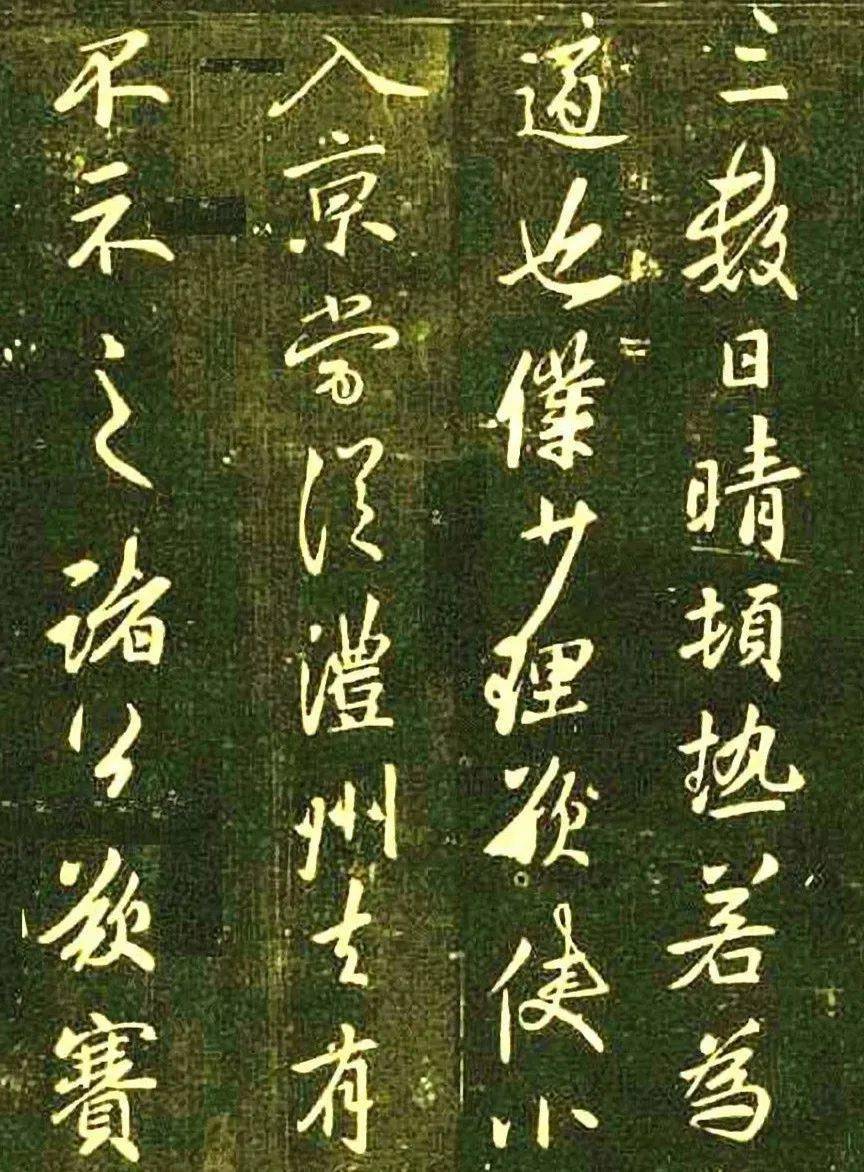 三數日晴頓热若為
適也僕少理欲使小
入京當從澧州去有
不示之諸公欲賽